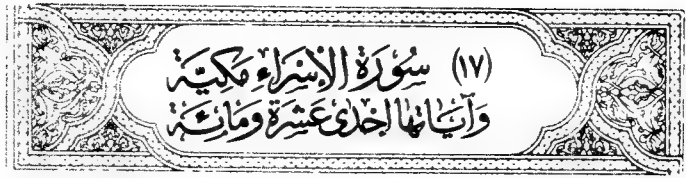 (١٧) سُورَةُ الْإِسْرَاءِ مَكِيَّة
وَآيَاتُهَا اِحْدَىٰ عَشِرَةَ وَمَائِة